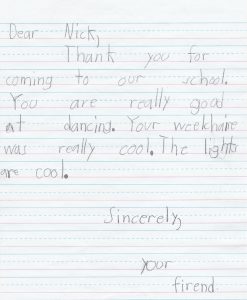 Dear Nick,
Thank you for
coming to our school.
You are really good
at dancing. Your weelchaire
was really cool. The lights
are cool.
Sincerely,
your
firend